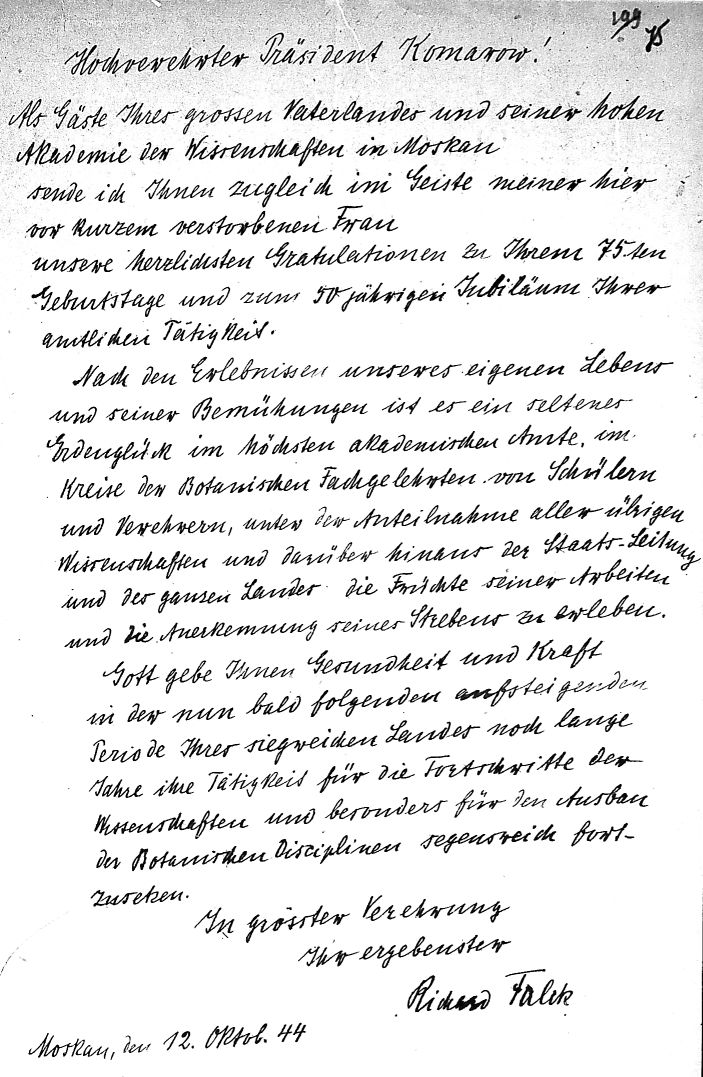 199
75
Hochverehrter Präsident Komarow!
Als Gäste Ihres grossen Vaterlandes und seiner hohen
Akademie der Wissenschaften in Moskau
sende ich Ihnen zugleich im Geiste meiner hier
vor kurzem verstorbenen Frau
unsere herzlichsten Gratulationen zu Ihrem 75-ten
Geburtstage und zum 50 jährigen Jubiläum Ihrer
amtlichen Tätigkeit.
Nach den Erlebnissen unseres eigenen Lebens
und seiner Bemühungen ist es ein seltenes
Erdenglück im höchsten akademischen Amte, im
Kreise der Botanischen Fachgelehrten von Schülern
und Verehrern, unter der Anteilnahme aller übrigen
Wissenschaften und darüber hinaus der Staats-Leitung
und des ganzen Landes die Früchte seiner Arbeiten
und die Anerkennung seines Strebens zu erleben.
Gott gebe Ihnen Gesundheit und Kraft
in der nun bald folgenden aufsteigenden
Periode Ihres siegreichen Landes noch lange
Jahre ihre Tätigkeit für die Fortschritte der
Wissenschaften und besonders für den Ausbau
der Botanischen Disciplinen segensreich fort-
zusetzen.
In grösster Verehrung
Ihr ergebenster
Richard Falck
Moskau, den 12. Oktob. 44